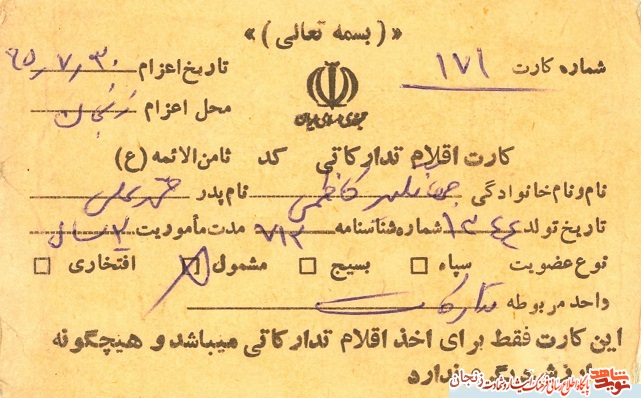 «(بسمه تعالی)»
شماره کارت ۱۷۱ تاریخ اعزام ۶۵/۷/۳۰
جمهوری اسلامی ایران محل اعزام زنجان
کارت اقلام تدارکاتی کد ثامن الائمه (ع)
نام و نام خانوادگی جهانگیر کاظمی نام پدر
تاریخ تولد ۱۳۴۴ شماره شناسنامه ۷۱۲ مدت مأموریت ۲ سال
نوع عضویت سپاه □ بسیج □ مشمول □ افتخاری □
واحد مربوطه تدارکات
این کارت فقط برای اخذ اقلام تدارکاتی میباشد و هیچگونه
ارزش دیگری ندارد
نوید شاهد پایگاه اطلاع رسانی فرهنگ ایثار و شهادت زنجان